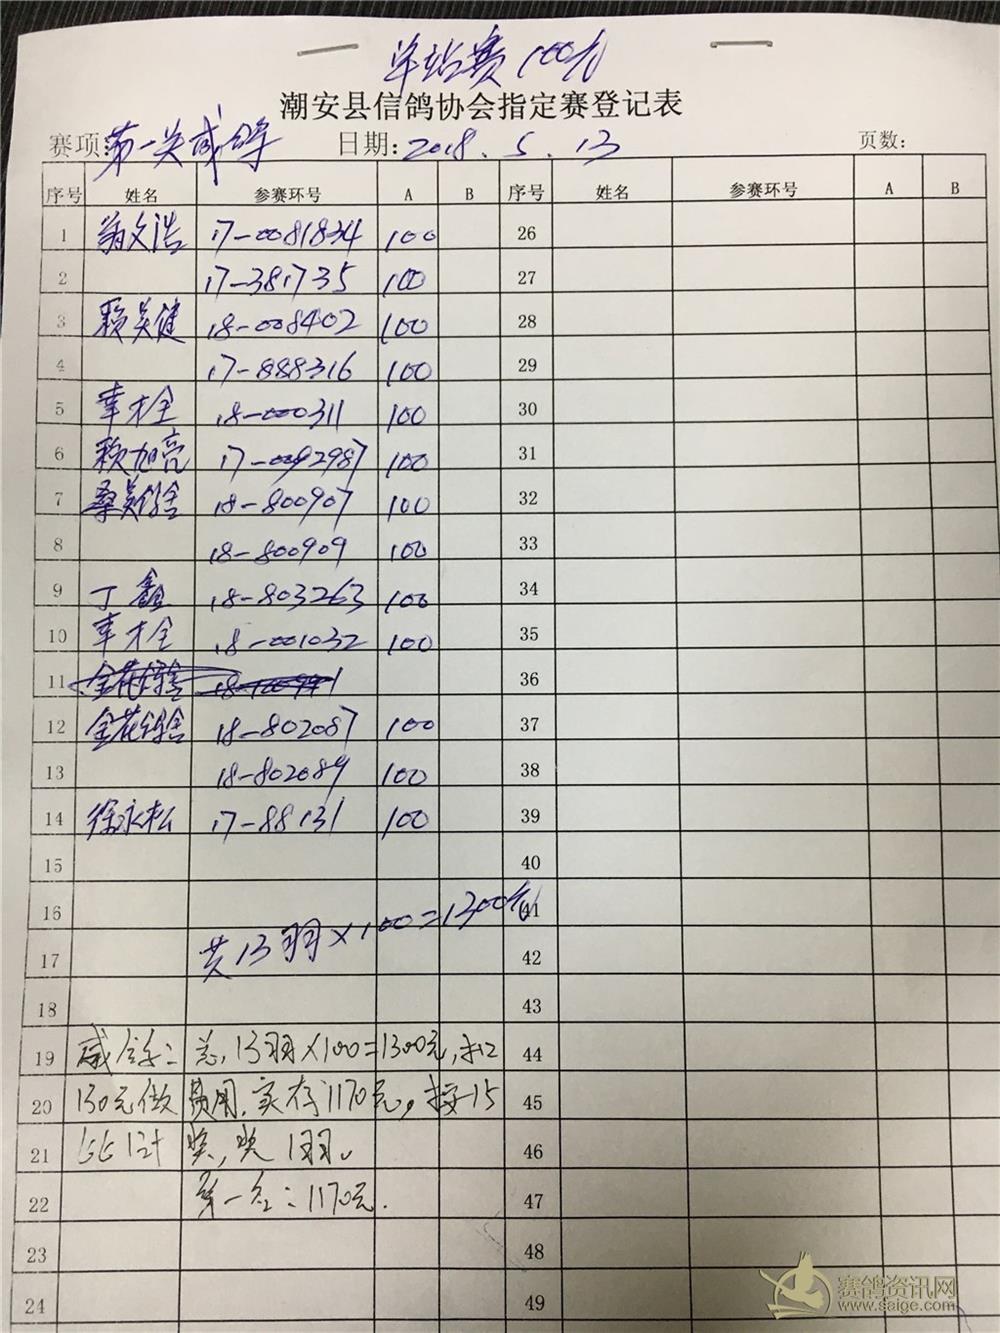 单站赛100元
潮安县信鸽协会指定赛登记表
赛项:第一关咸宁 日期:2018.5.13 页数:
序号 姓名 参赛环号 A B 序号 姓名 参赛环号 A B
1 翁文浩 17-0081834 100 26
2 17-381735 100 27
3 赖英健 18-008402 100 28
4 17-888316 100 29
5 辜木全 18-000311 100 30
6 赖旭亮 17-0092987 100 31
7 桑英鸽舍 18-800907 100 32
8 18-800909 100 33
9 丁鑫 18-803263 100 34
10 辜木全 18-001032 100 35
11 金花鸽舍 36
12 金花鸽舍 18-802087 100 37
13 18-802089 100 38
14 徐永松 17-88131 100 39
15 40
16 41
17 共13羽×100=1300元 42
18 43
19 咸宁: 总,13羽×100=1300元,扣 44
20 130元做费用,实存1170元,按15 45
21 比1计奖,奖1羽。 46
22 第一名:1170元. 47
23 48
24 49
赛鸽资讯网
www.saige.com